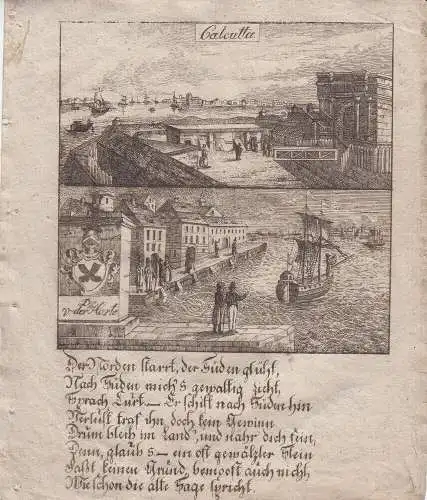 Calcutta
v. der Horst
Der Norden starrt, der Süden glüht,
Nach Süden mich's gewaltig zieht,
Sprach Curt, – Er schift nach Süden hin
Verlust traf ihn doch kein Gewinn
Drum bleib im Land, und nähr dich fein,
Denn, glaub's – ein oft gewälzter Stein
Faßt keinen Grund, bemoost auch nicht,
Wie schon die alte Sage spricht.